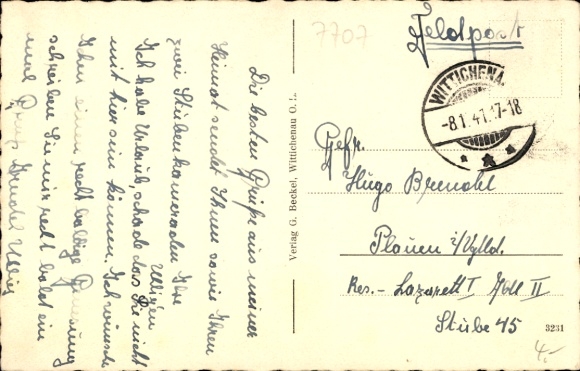 Die besten Grüße aus meiner
Heimat sendet Ihnen sowie Ihren
zwei Stubenkameraden Ihre
Ulligen
Ich habe Urlaub, schade das Sie nicht
mit hier sein können. Ich wünsche
Ihnen einen recht baldige Genesung
schreiben Sie mir recht bald ein
mal Gruß
Verlag G. Beckel, Wittichenau O.L.
7707
Feldpost
WITTICHENAU
-8.1.41.17-18
Gefr.
Hugo Brendel
Plauen i/Vgtld.
Res.- Lazarett I Abtl II
Stube 45
3231
4.-